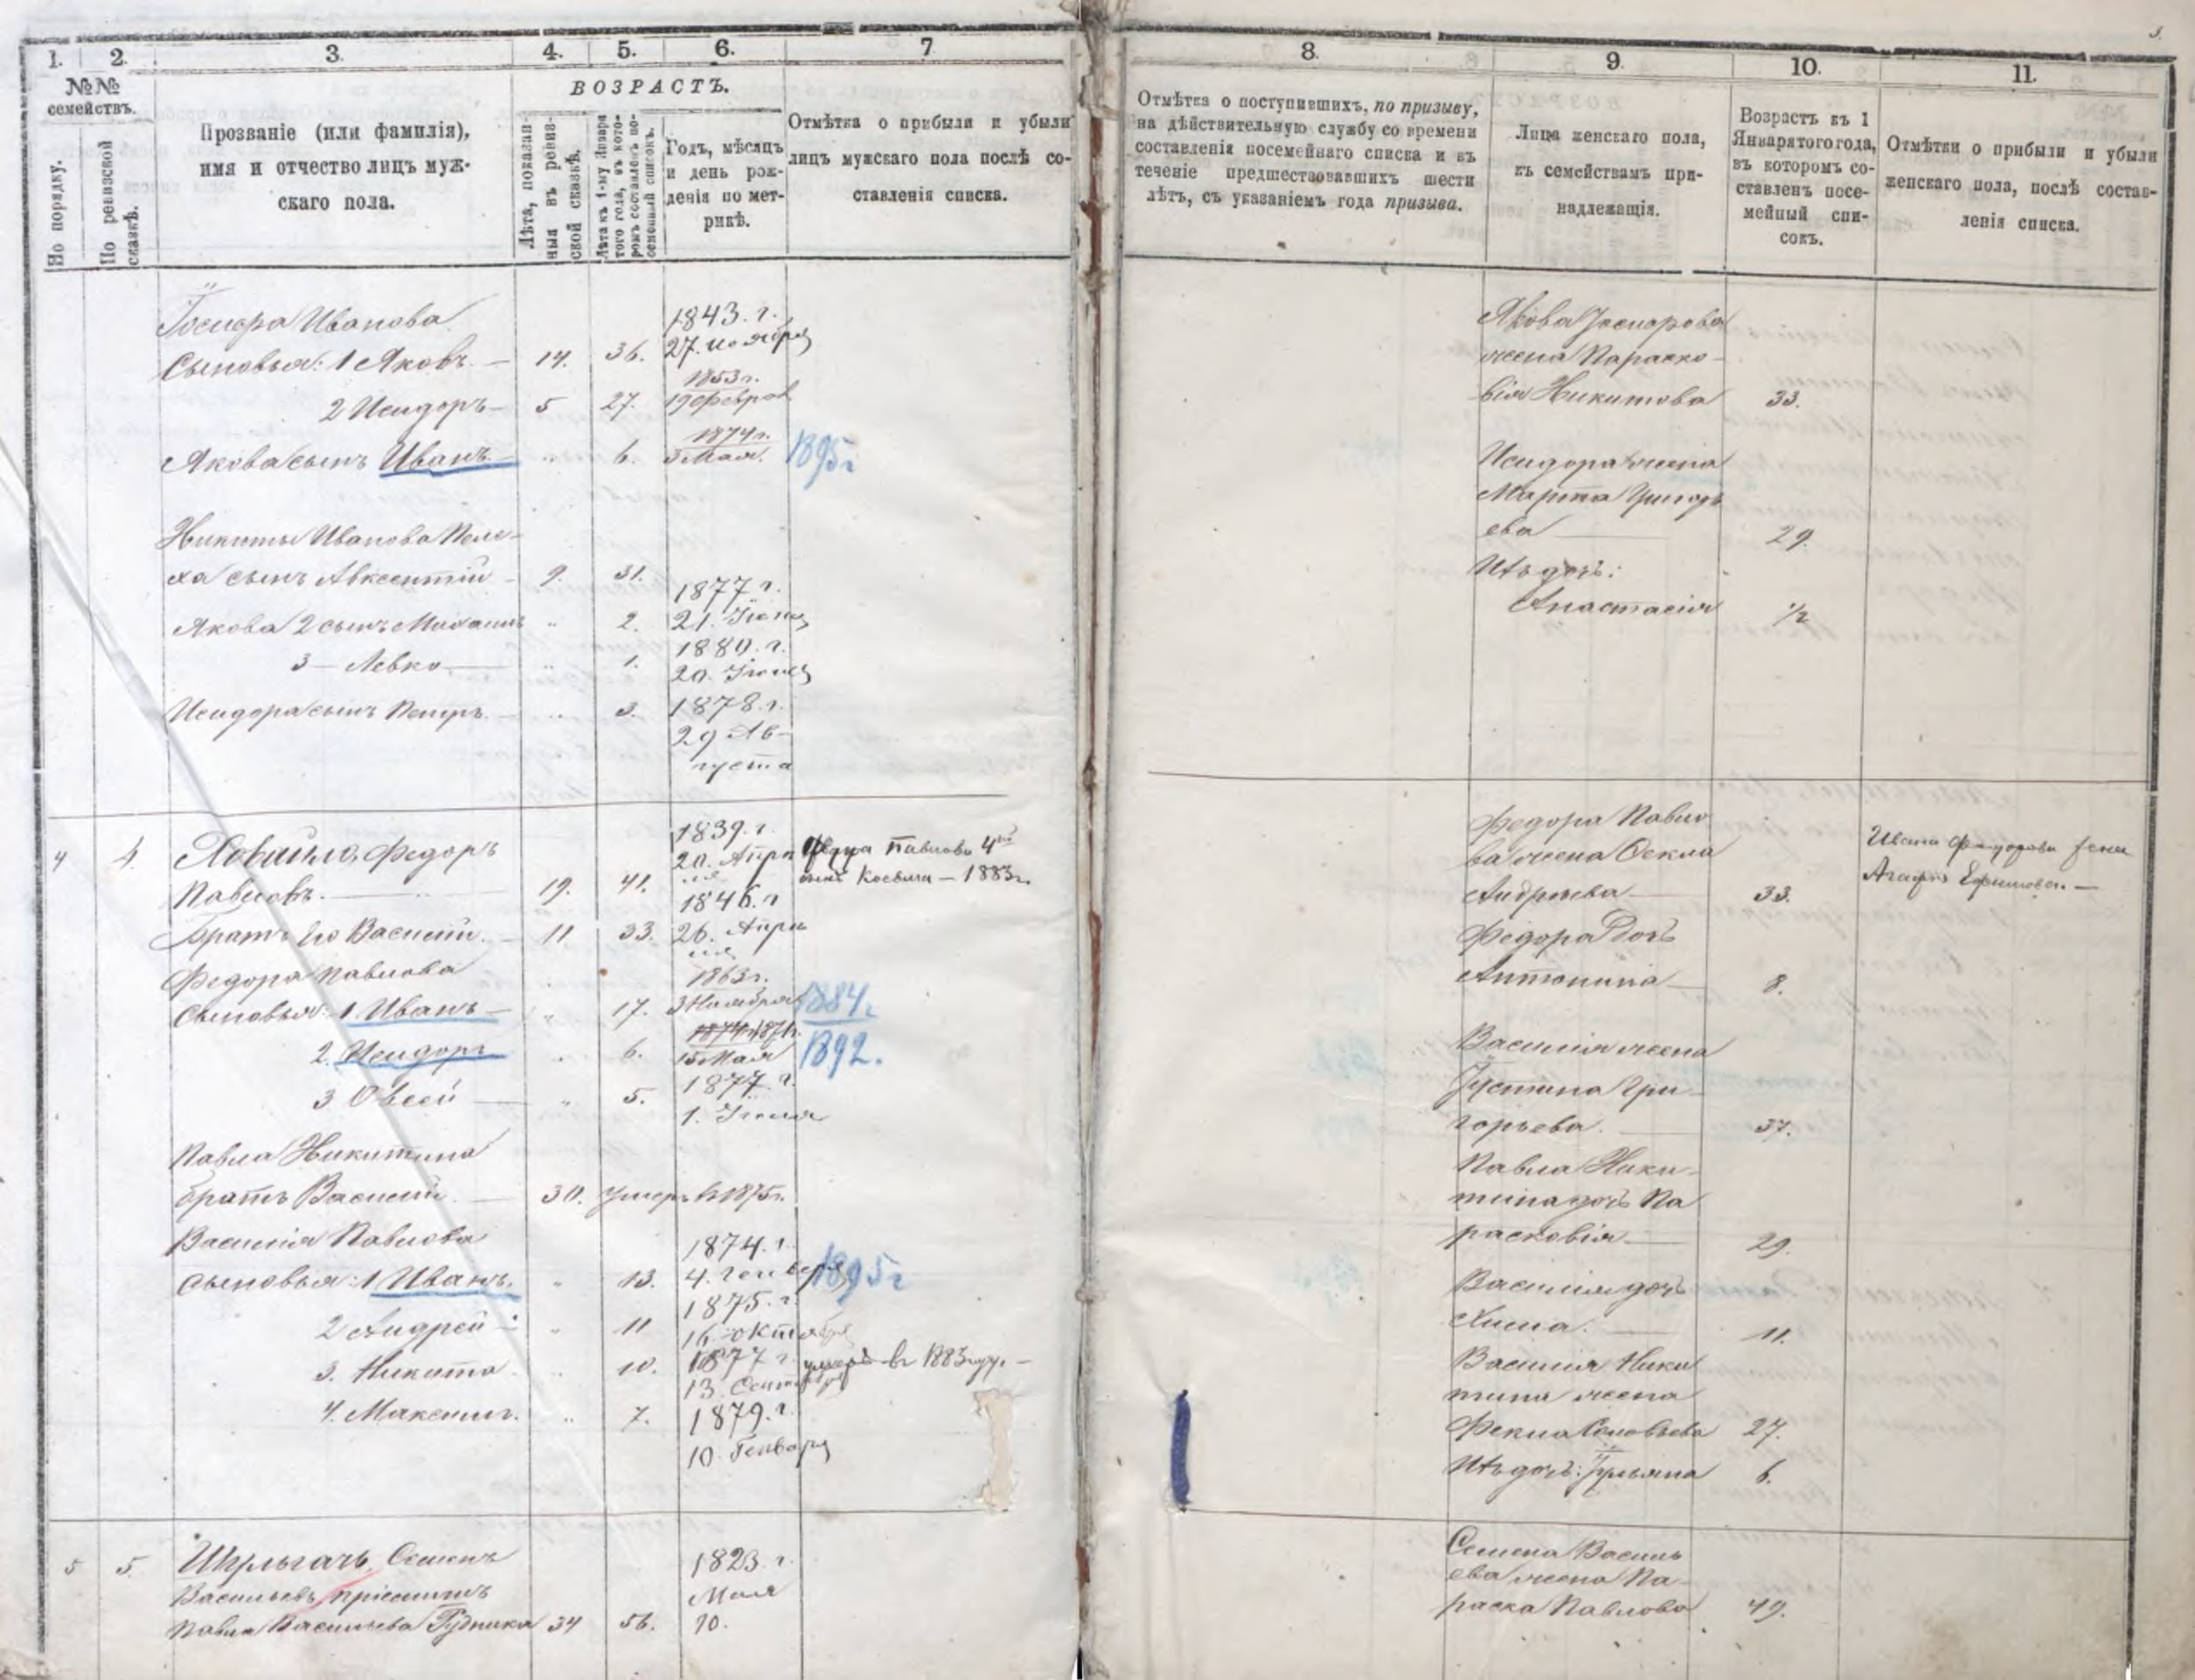 3.
1. 2. 3. 4. 5. 6. 7
№№ семействъ.
По порядку.
По ревизской сказкѣ.
Прозваніе (или фамилія),
имя и отчество лицъ муж-
скаго пола.
ВОЗРАСТЪ.
Лѣта, показан-
ныя въ ревиз-
ской сказкѣ.
Лѣта къ 1-му Января
того года, въ кото-
ромъ составленъ по-
семейный списокъ.
Годъ, мѣсяцъ
и день рож-
денія по мет-
рикѣ.
Отмѣтка о прибыли и убыли
лицъ мужскаго пола послѣ со-
ставленія списка.
Іосифра Иванова 1843. г.
Сыновья: 1 Яковъ. — 14. 36. 27. ноября
1853 г.
2 Исидоръ — 5 27. 19 Феврал
1874 г.
Якова сынъ Иванъ — " 6. 3 Мая. 1895 г
Никиты Иванова Пеле-
ха сынъ Авксентій — 9. 31.
1877 г.
Якова 2 сынъ Михаилъ " 2. 21. Іюня
1880. г.
3 — Левко — " 1. 20. Іюня
Исидора сынъ Петръ. — " 3. 1878. г.
29 Ав-
густа
4 4. Ховайло, Федоръ 1839. г.
20. Апри Федора Павлова 4й
ля сынъ Косьма — 1883 г.
Павловъ. — 19. 41.
1846. г
Братъ его Василій. — 11 33. 26. Апри
ля
Федора Павлова 1863 г.
Сыновья: 1 Иванъ — " 17. 3 Ноября 1884 г
1874 г 1871 г.
2. Исидоръ " 6. 15 Мая 1892.
3 Овсей — " 5. 1877. г.
1. Іюня
Павла Никитина
братъ Василій. — 30. умеръ въ 1875 г.
Василія Павлова 1874. г.
сыновья: 1 Иванъ. " 13. 4. Генваря 1895 г
1875. г.
2 Андрей " 11 16. Октября
3. Никита " 10. 1877 г. умеръ въ 1883 году. —
13. Сентября
4. Максимъ. " 7. 1879. г.
10. Генваря
5 5. Шрлыгачъ, Семенъ 1823. г.
Васильевъ пріемышъ Мая
Павла Васильева Рудника 34 56. 10.
8. 9. 10. 11.
Отмѣтка о поступившихъ, по призыву,
на дѣйствительную службу со времени
составленія посемейнаго списка и въ
теченіе предшествовавшихъ шести
лѣтъ, съ указаніемъ года призыва.
Лица женскаго пола,
къ семействамъ при-
надлежащія.
Возрастъ къ 1
Января того года,
въ которомъ со-
ставленъ посе-
мейный спи-
сокъ.
Отмѣтки о прибыли и убыли
женскаго пола, послѣ состав-
ленія списка.
Якова Іосифрова
жена Параско-
вія Никитова 33.
Исидора жена
Марта Григорь
ева — 29.
Ихъ дочь:
Анастасія 1/2
Федора Павло
ва жена Фекла
Андреева — 33.
Ивана Федорова жена
Агафья Ефимова. —
Федора дочь
Антонина — 8.
Василія жена
Іустина Гри-
горьева. — 37.
Павла Ники-
тина дочь Па
расковія — 29.
Василія дочь
Химла. — 11.
Василія Ники
тина жена
Фекла Соловьева 27.
Ихъ дочь: Іульяна 6.
Семена Василь
ева жена Па-
раска Павлова 49.